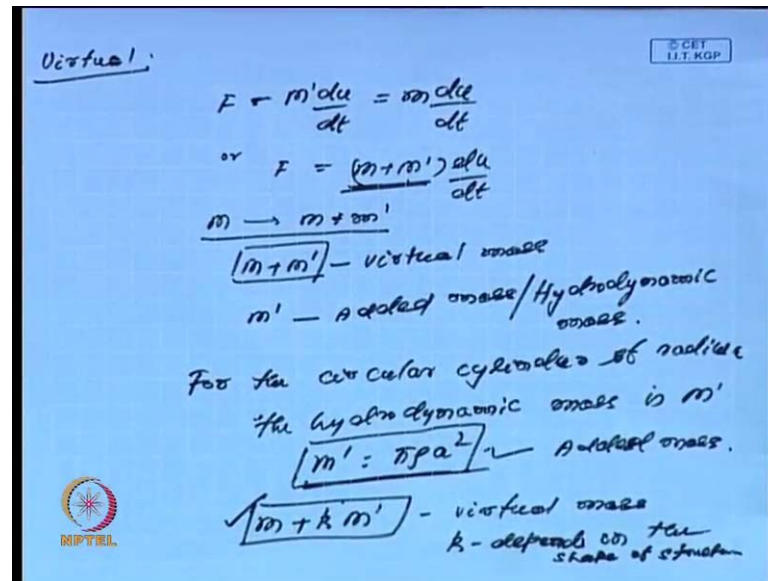 Virtual.
© CET
I.I.T. KGP
F - m' du/dt = m du/dt
or F = (m+m') du/dt
m → m + m'
(m+m') - virtual mass
m' - Added mass/Hydrodynamic
mass.
For the circular cylinder of radius
the hydrodynamic mass is m'
m' = πρa² - Added mass.
m + k m' - virtual mass
k - depends on the
shape of structure
NPTEL